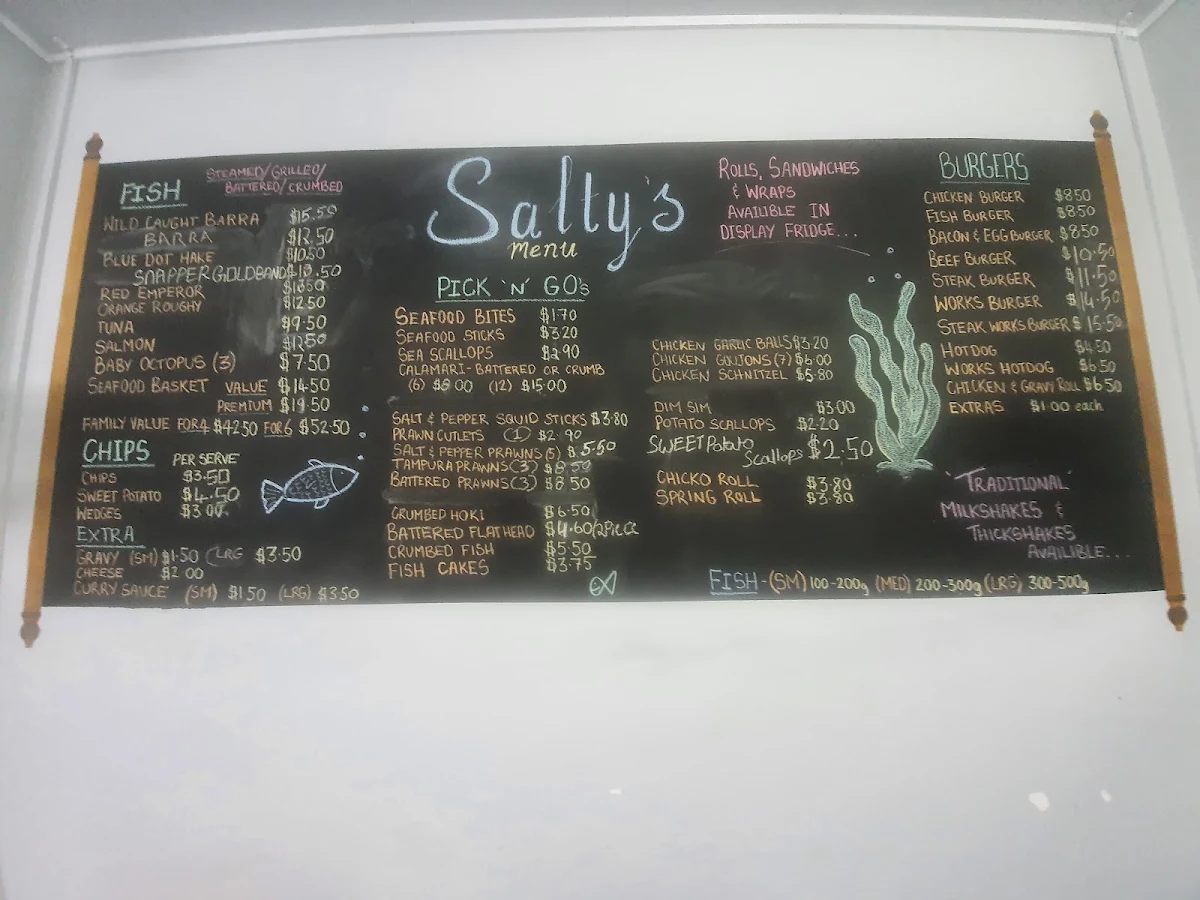 FISH
STEAMED/GRILLED/
BATTERED/CRUMBED
WILD CAUGHT BARRA $15.50
BARRA $12.50
BLUE DOT HAKE $10.50
SNAPPER GOLDBAND
RED EMPEROR
ORANGE ROUGHY $12.50
TUNA $9.50
SALMON $12.50
BABY OCTOPUS (3) $7.50
SEAFOOD BASKET VALUE $14.50
PREMIUM $19.50
FAMILY VALUE FOR 4 $42.50 FOR 6 $52.50
CHIPS PER SERVE
CHIPS $3.50
SWEET POTATO $4.50
WEDGES $3.00
EXTRA
GRAVY (SM) $1.50 LRG $3.50
CHEESE $2.00
CURRY SAUCE (SM) $1.50 (LRG) $3.50
Salty's
menu
PICK 'N' GO's
SEAFOOD BITES $1.70
SEAFOOD STICKS $3.20
SEA SCALLOPS $2.90
CALAMARI - BATTERED OR CRUMB
(6) $8.00 (12) $15.00
SALT & PEPPER SQUID STICKS $3.80
PRAWN CUTLETS (1) $2.90
SALT & PEPPER PRAWNS (5) $5.50
TAMPURA PRAWNS (3) $8.50
BATTERED PRAWNS (3) $8.50
CRUMBED HOKI $6.50
BATTERED FLATHEAD $4.60/2Piece
CRUMBED FISH $5.50
FISH CAKES $3.75
ROLLS, SANDWICHES
& WRAPS
AVAILIBLE IN
DISPLAY FRIDGE...
CHICKEN GARLIC BALLS $3.20
CHICKEN GOUJONS (7) $6.00
CHICKEN SCHNITZEL $5.80
DIM SIM $3.00
POTATO SCALLOPS $2.20
SWEET Potato
Scallops $2.50
CHICKO ROLL $3.80
SPRING ROLL $3.80
BURGERS
CHICKEN BURGER $8.50
FISH BURGER $8.50
BACON & EGG BURGER $8.50
BEEF BURGER $10.50
STEAK BURGER $11.50
WORKS BURGER $14.50
STEAK WORKS BURGER $15.50
HOTDOG $4.50
WORKS HOTDOG $6.50
CHICKEN & GRAVY ROLL $6.50
EXTRAS $1.00 each
'TRADITIONAL'
MILKSHAKES &
THICKSHAKES
AVAILIBLE...
FISH - (SM) 100-200g (MED) 200-300g (LRG) 300-500g